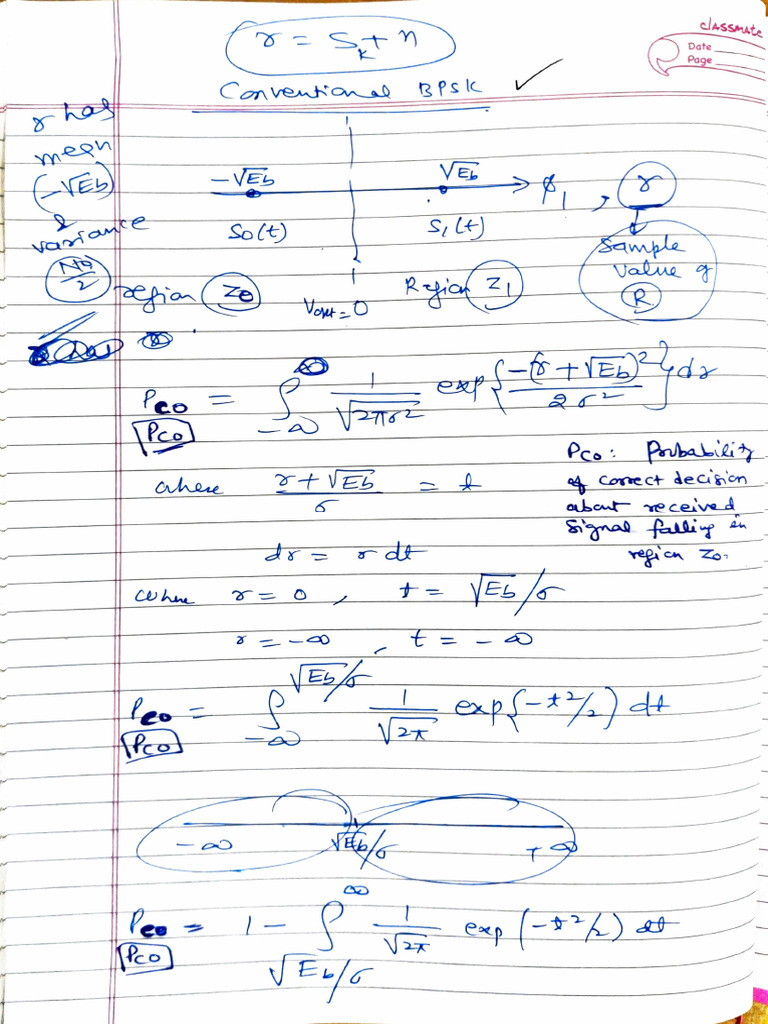 classmate
Date
Page
r = S_k + n
Conventional BPSK ✓
r has
mean
(-√Eb)
&
variance
N0/2
-√Eb √Eb
ϕ_1 , r
S0(t) S_1(t)
Sample
value of
R
region Z0 Vopt = 0 Region Z_1
P_co = ∫_{-∞} 1/√(2πσ²) exp{-(r + √Eb)²/2σ²} dr
P_CO
P_CO : Probability
of correct decision
about received
signal falling in
region Z0.
where (r + √Eb)/σ = t
dr = σ dt
where r = 0 , t = √Eb/σ
r = -∞ , t = -∞
P_co = ∫_{-∞}^{√Eb/σ} 1/√2π exp{-t²/2} dt
P_CO
-∞ √Eb/σ +∞
P_co = 1 - ∫_{√Eb/σ}^{∞} 1/√2π exp(-t²/2) dt
P_CO